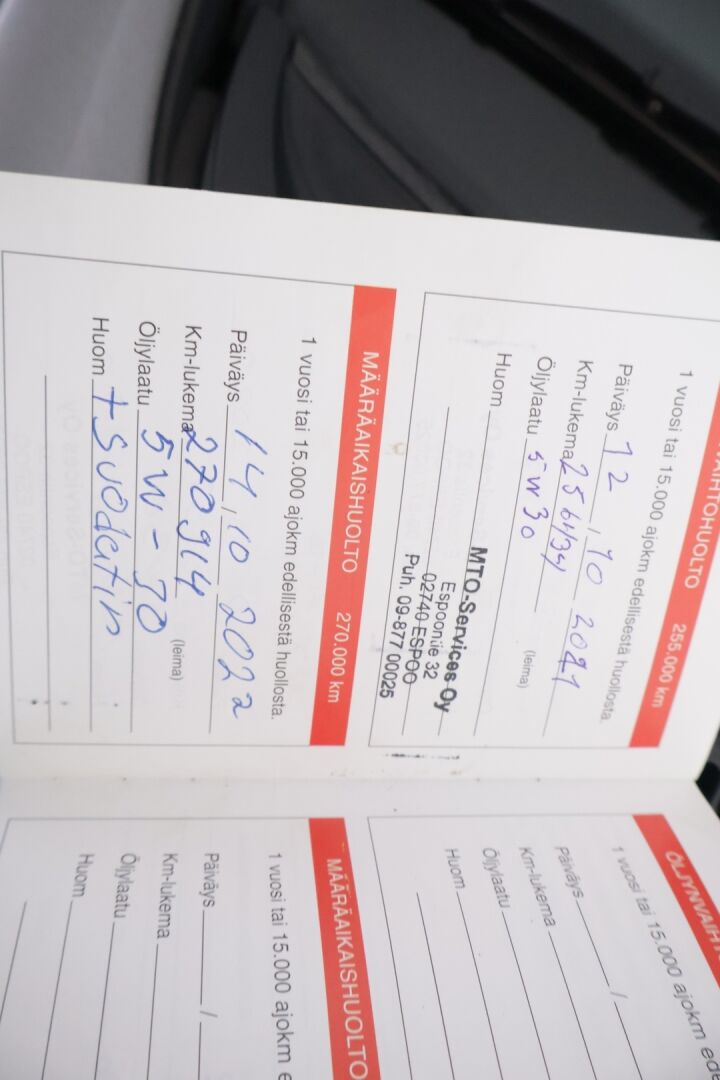 VAIHTOHUOLTO 255.000 km
1 vuosi tai 15.000 ajokm edellisestä huollosta.
Päiväys 12 / 10 2021
Km-lukema
Öljylaatu 5W30 (leima)
Huom
MTO-Services Oy
Espoontie 32
02740 ESPOO
Puh. 09-877 00025
MÄÄRÄAIKAISHUOLTO 270.000 km
1 vuosi tai 15.000 ajokm edellisestä huollosta.
Päiväys 14 / 10 2022
Km-lukema 270914
Öljylaatu 5W-30 (leima)
Huom + Suodatin
ÖLJYNVAIHT
1 vuosi tai 15.000 ajokm ede
Päiväys /
Km-lukema
Öljylaatu
Huom
MÄÄRÄAIKAISHUOLTO
1 vuosi tai 15.000 ajokm e
Päiväys /
Km-lukema
Öljylaatu
Huom